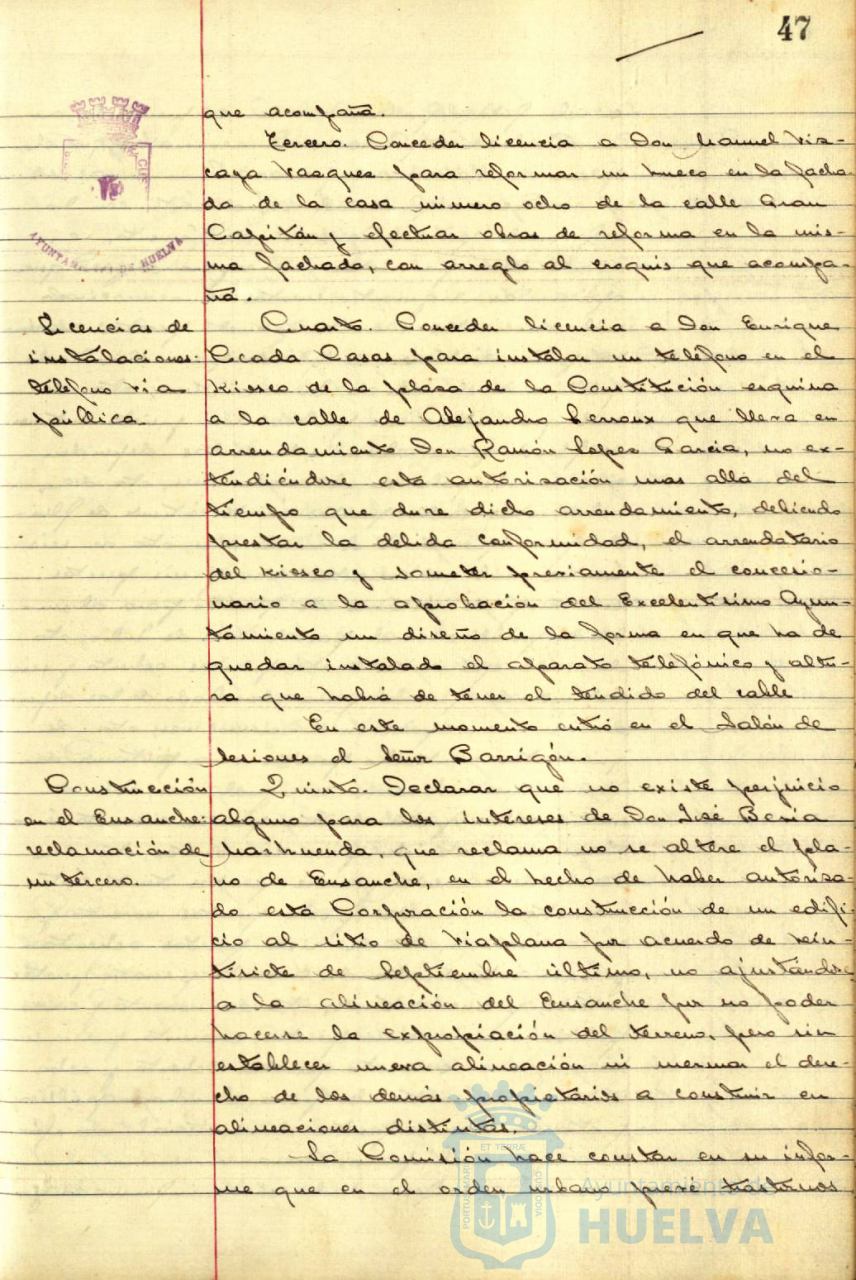 47
que acompaña.
Tercero. Conceder licencia a Don Manuel Vis-
caya Vasques para reformar un hueco en la facha-
da de la casa número ocho de la calle Gran
Capitán y efectuar obras de reforma en la mis-
ma fachada, con arreglo al croquis que acompa-
ña.
Licencias de
instalaciones:
teléfono vía
pública.
Cuarto. Conceder licencia a Don Enrique
Casas para instalar un teléfono en el
Kiosco de la plaza de la Constitución esquina
a la calle de Alejandro Lerroux que lleva en
arrendamiento Don Ramón Lopez García, no ex-
tendiéndose esta autorización mas alla del
tiempo que dure dicho arrendamiento, debiendo
prestar la debida conformidad, el arrendatario
del Kiosco y someter previamente el concesio-
nario a la aprobación del Excelentisimo Ayun-
tamiento un diseño de la forma en que ha de
quedar instalado el aparato telefónico y altu-
ra que habrá de tener el tendido del cable
En este momento entró en el Salón de
sesiones el Señor Barrigón.
Construcción
en el Ensanche:
reclamación de
un tercero.
Quinto. Declarar que no existe perjuicio
alguno para los intereses de Don José
Marhuenda, que reclama no se altere el pla-
no de Ensanche, en el hecho de haber autoriza-
do esta Corporación la construcción de un edifi-
cio al sitio de Viaplana por acuerdo de vein-
tisiete de Septiembre último, no ajustándose
a la alineación del Ensanche por no poder
hacerse la expropiación del terreno, pero sin
establecer nueva alineación ni mermar el dere-
cho de los demás propietarios a construir en
alineaciones distintas.
La Comisión hace constar en su infor-
me que en el orden urbano prevé trastornos
AYUNTAMIENTO DE HUELVA
Ayuntamiento de
HUELVA